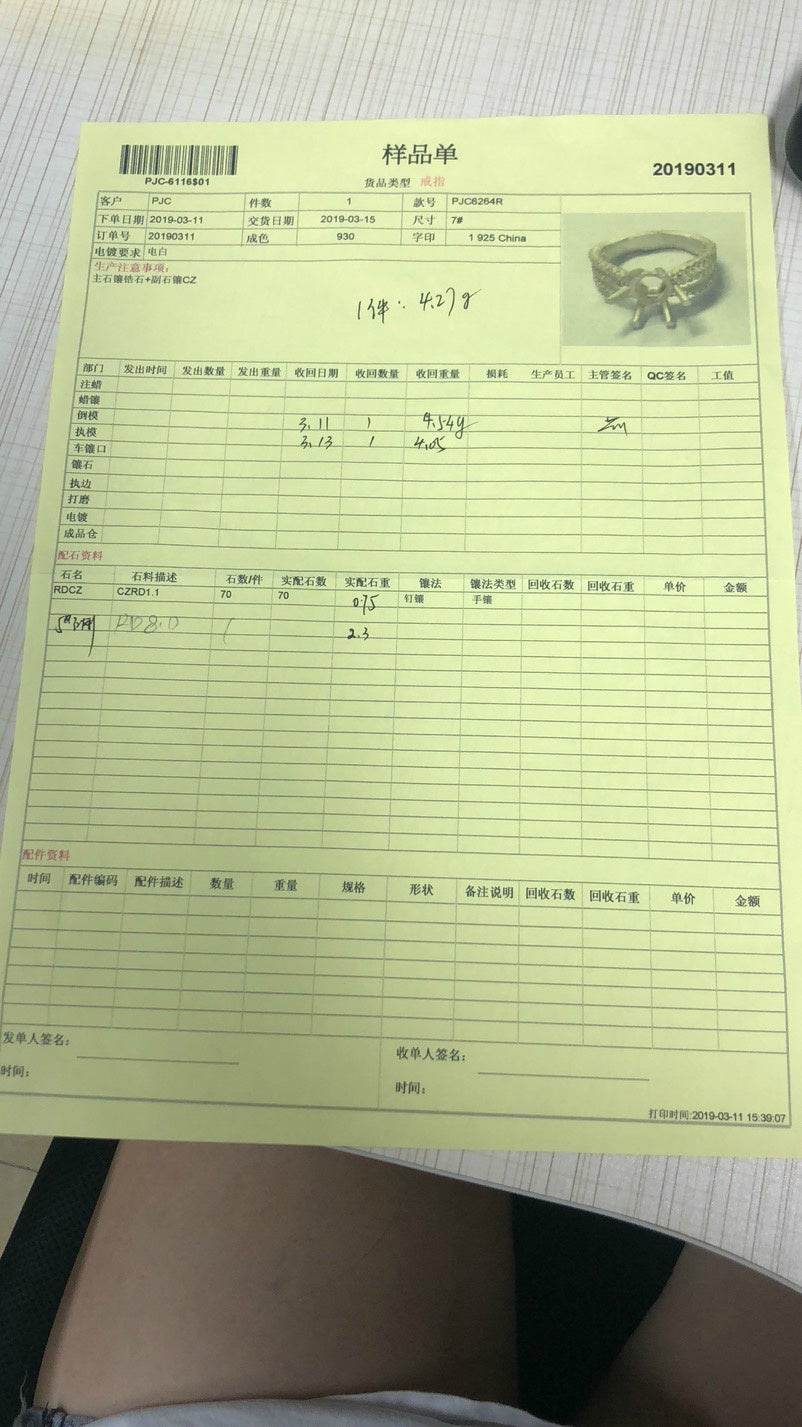 样品单
PJC-6116$01
货品类型 戒指
20190311
客户 PJC 件数 1 款号 PJC6264R
下单日期 2019-03-11 交货日期 2019-03-15 尺寸 7#
订单号 20190311 成色 930 字印 1 925 China
电镀要求 电白
生产注意事项:
主石镶锆石+副石镶CZ
1件: 4.27g
部门 发出时间 发出数量 发出重量 收回日期 收回数量 收回重量 损耗 生产员工 主管签名 QC签名 工值
注蜡
蜡镶
倒模 3.11 1 4.54g
执模 3.13 1 4.05
车镶口
镶石
执边
打磨
电镀
成品仓
配石资料
石名 石料描述 石数/件 实配石数 实配石重 镶法 镶法类型 回收石数 回收石重 单价 金额
RDCZ CZRD1.1 70 70 0.75 钉镶 手镶
RD8.0 1 2.3
配件资料
时间 配件编码 配件描述 数量 重量 规格 形状 备注说明 回收石数 回收石重 单价 金额
发单人签名: 收单人签名:
时间: 时间:
打印时间:2019-03-11 15:39:07